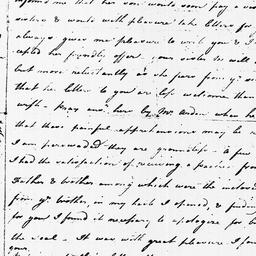 informed me that her son would soon pay a vis
sister & would with pleasure take letters for y
always give me pleasure to write you & I
cepted her friendly offer, your sister as well a
but more reluctantly as she fears from yr
that her letters to you are less welcome than
wish - Pray answer here by Mr. Arden when he
that these painful apprehensions may be
I am persuaded they are groundless - a few
I had the satisfaction of receiving a packet from
Father & brother among which were the inclosed
from yr brother, in my last I opened, & finding
for you I found it necessary to apologize for br
the seal - It was with great pleasure I fou
your